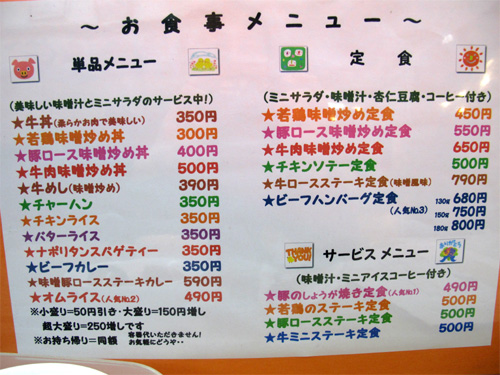 ～ お食事メニュー ～
単品メニュー
(美味しい味噌汁とミニサラダのサービス中!)
★牛丼(柔らかお肉で美味しい) 350円
★若鶏味噌炒め丼 300円
★豚ロース味噌炒め丼 400円
★牛肉味噌炒め丼 500円
★牛めし(味噌炒め) 390円
★チャーハン 350円
★チキンライス 350円
★バターライス 350円
★ナポリタンスパゲティー 350円
★ビーフカレー 350円
★味噌豚ロースステーキカレー 590円
★オムライス(人気No.2) 490円
※小盛り=50円引き・大盛り=150円増し
超大盛り=250増しです
※お持ち帰り=同額
容器代いただきません!
お気軽にどうぞ・・
定食
(ミニサラダ・味噌汁・杏仁豆腐・コーヒー付き)
★若鶏味噌炒め定食 450円
★豚ロース味噌炒め定食 550円
★牛肉味噌炒め定食 650円
★チキンソテー定食 500円
★牛ロースステーキ定食(味噌風味) 790円
★ビーフハンバーグ定食 130g 680円
(人気No.3) 150g 750円
180g 800円
THANK YOU!
サービス メニュー
ありがとう
(味噌汁・ミニアイスコーヒー付き)
★豚のしょうが焼き定食(人気No.1) 490円
★若鶏のステーキ定食 500円
★豚ロースステーキ定食 500円
★牛ミニステーキ定食 500円